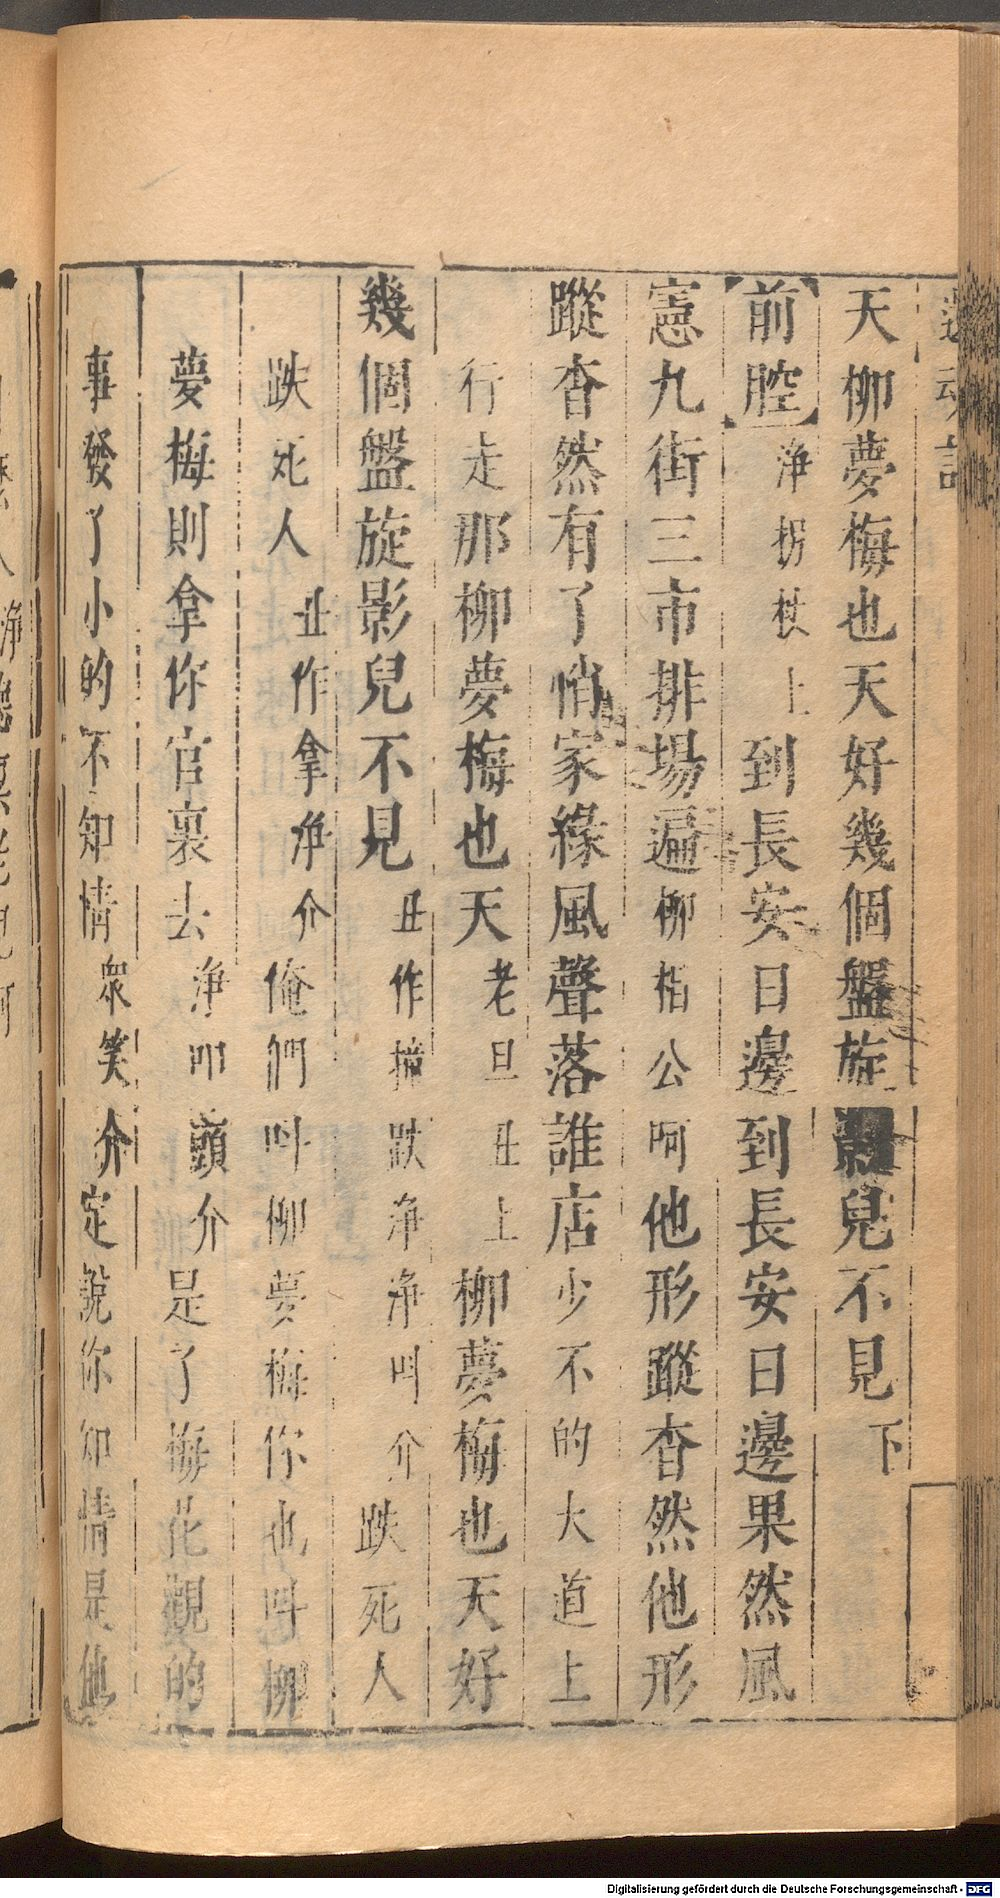 天柳夢梅也天好幾個盤旋影兒不見下
【前腔】淨拐杖上到長安日邊到長安日邊果然風
憲九街三市排場遍柳相公呵他形蹤杳然他形
蹤杳然有了悄家緣風聲落誰店少不的大道上
行走那柳夢梅也天老旦丑上柳夢梅也天好
幾個盤旋影兒不見丑作撞跌淨淨叫介跌死人
跌死人丑作拿淨介俺們叫柳夢梅你也叫柳
夢梅則拿你官裏去淨叩頭介是了梅花觀的
事發了小的不知情衆笑介定說你知情是他
Digitalisierung gefördert durch die Deutsche Forschungsgemeinschaft - DFG